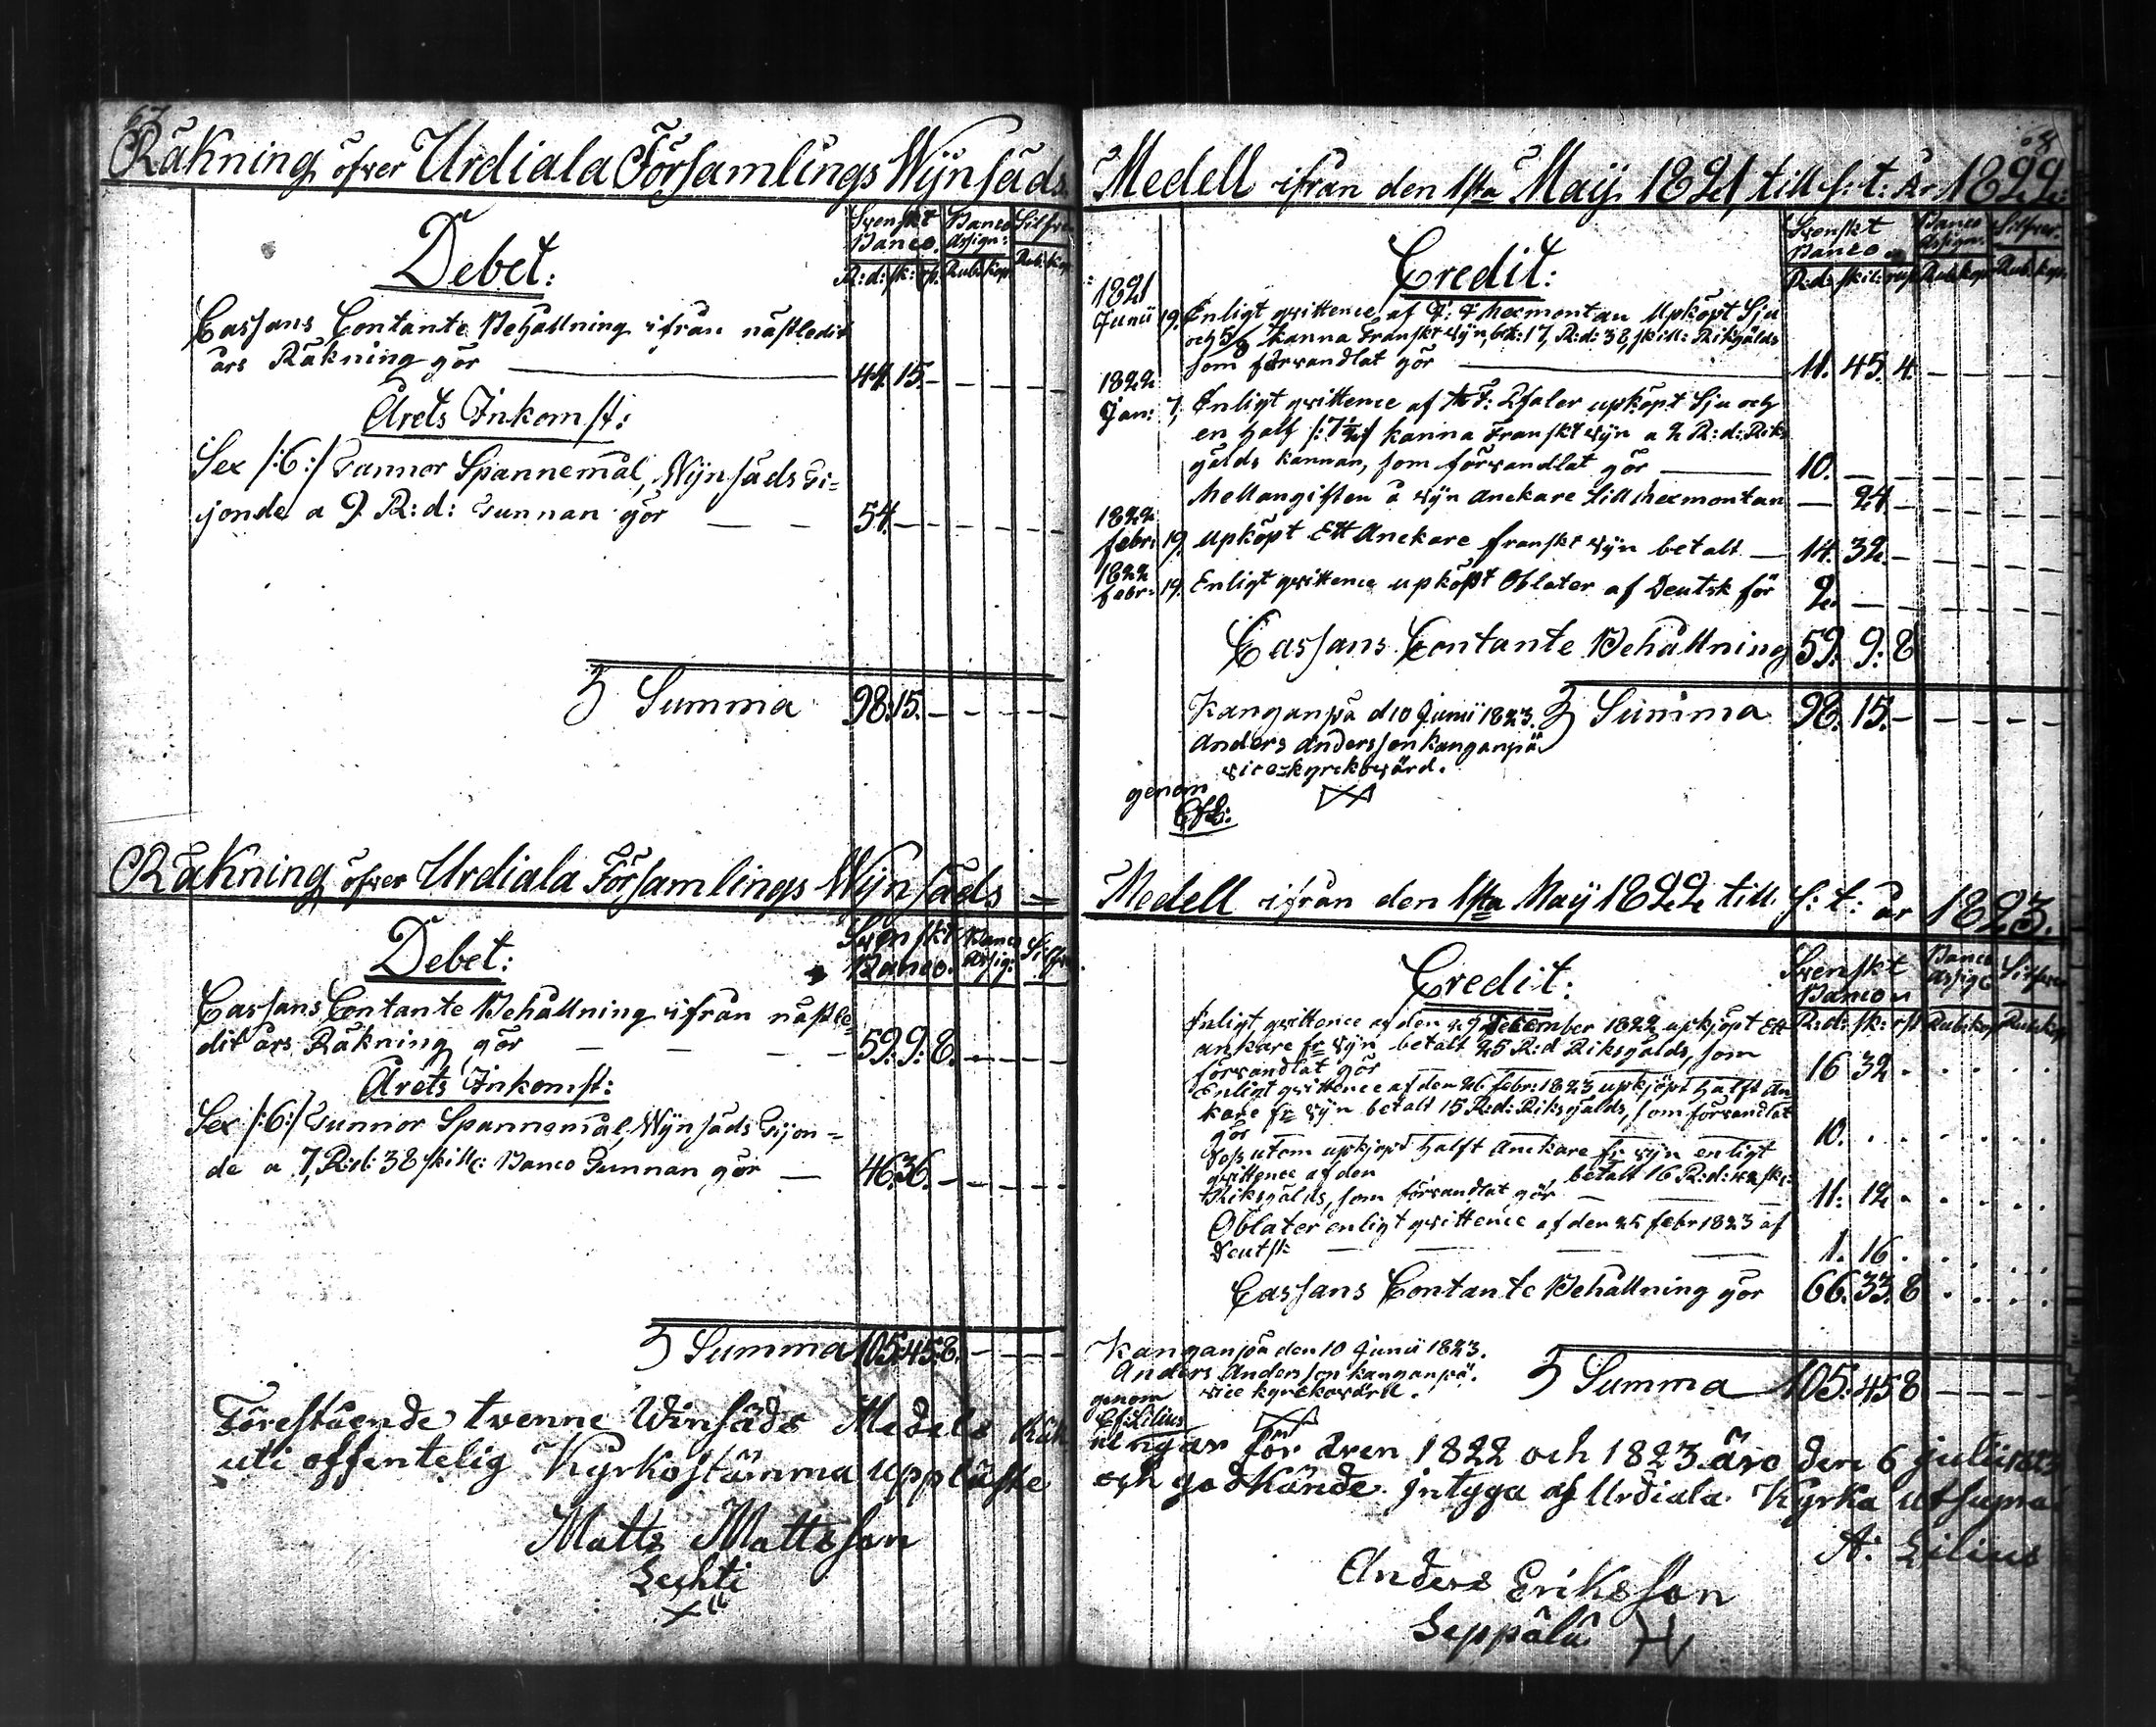 67
Räkning öfver Urdiala Församlings Wijnsäds
Debet:
Svenskt Banco. Banco Assign: Silfver
R:d: sk: rst. Rub: kop Rub: kop
Cassans Contante Behållning ifrån nästledit
års Räkning gör 44. 15. — — — — —
Årets Inkomst:
Sex /:6:/ Tunnor Spannemål, Wijnsäds Ti=
ijonde a 9 R:d: Tunnan gör — — 54. — — — — —
Summa 98. 15. — — — — —
Räkning öfver Urdiala Församlings Wijnsäds =
Debet:
Svenskt Banco. Banco Assig: Silfver
Cassans Contante Behållning ifrån nästle=
dit års Räkning gör — — — — 59. 9. 8. — — — —
Årets Inkomst:
Sex /:6:/ Tunnor Spannemål, Wijnsäds Tijon=
de a 7, R:d: 38 skill: Banco Tunnan gör — 46. 36. — — — — —
Summa 105. 45. 8. — — — —
Förestående twenne Winsäds Medels Räk
uti offentelig Kyrkostämma uppläste
Matts Mattsson
Lechti
68
Medell ifrån den 1sta Maij 1821 till s: t: År 1822:
Credit:
Svenskt Banco Banco Assign. Silfver.
R:d: skil: rst Rub: kop Rub: kop.
1821
Junii 19. Enligt qvittence af F: Thermontan Upköpt Sju
och 5/8 kanna Franskt Wijn, bet: 17, R:d: 38, skill: Riksgälds
som förvandlat gör 11. 45. 4. — — — —
1822
Jan: 7. Enligt qvittence af upköpt Sju och
en half /:7 ½:/ kanna Franskt wijn a 2 R:d: Riks
gälds kannan, som förvandlat gör 10. — — — — — —
Mellangiften å wijn anckare till Thermontan — 24 — — — — —
1822
febr: 19. upköpt Ett Anckare franskt wijn betalt — 14. 32. — — — — —
1822
febr: 19. Enligt qvittence upköpt Oblater af Deutsk för 2. — — — — — —
Cassans Contante Behållning 59. 9. 8
Kanganpä d 10 Junii 1823. Summa 98. 15. — — — — —
Anders Andersson Kanganpä
vice kyrckovärd.
genom
Medell ifrån den 1sta Maij 1822 till. s: t: år 1823.
Credit:
Svenskt Banco Banco Assig: Silfver
R:d: sk: rst Rub: kop Rub: kop
Enligt qvittence af den 29 December 1822 upkjöpt Ett
ankare fr wijn betalt 25 R:d Riksgälds, som
förvandlat gör 16 32 . . . . .
Enligt qvittence af den 26 febr: 1823 upkjöpt halft An
kare fr wijn betalt 15 R:d: Riksgälds, som förvandlat
gör 10. . . . . . .
Dess utom upkjöpt halft Anckare fr wijn enligt
qvittence af den betalt 16 R:d: 42 sk:
Riksgälds, som förvandlat gör 11. 12 . . . . .
Oblater enligt qvittence af den 25 febr 1823 af
Deutsk — — — — 1. 16 . . . . .
Cassans Contante Behållning gör 66. 33. 8 . . . .
Kanganpä den 10 Junii 1823.
Anders Andersson Kanganpä. Summa 105. 45 8 — — — —
genom vice kyrckovärd.
Lilius
ningar för åren 1822 och 1823 äro den 6 julii 1823
och godkände. Intyga af Urdiala Kyrka utsupra
A: Lilius
Anders Eriksson
Seppälä